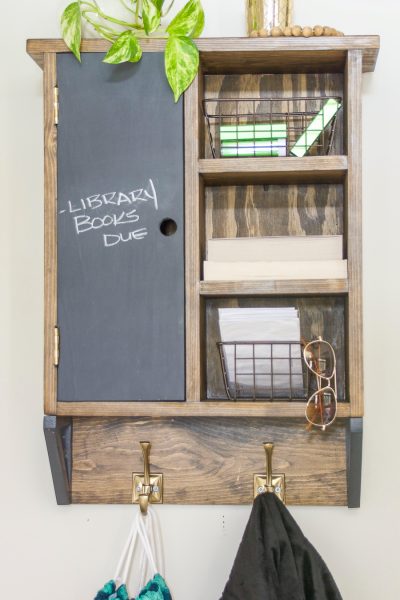 -LIBRARY
BOOKS
DUE